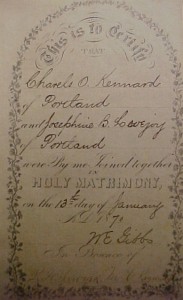 This is to Certify
THAT
Charels O. Kennard
of Portland
and Josephine B.
of Portland
were By me Joined together
IN
HOLY MATRIMONY,
on the 13th day of January
A.D. 187
W.E. Gibbs
In Presence of